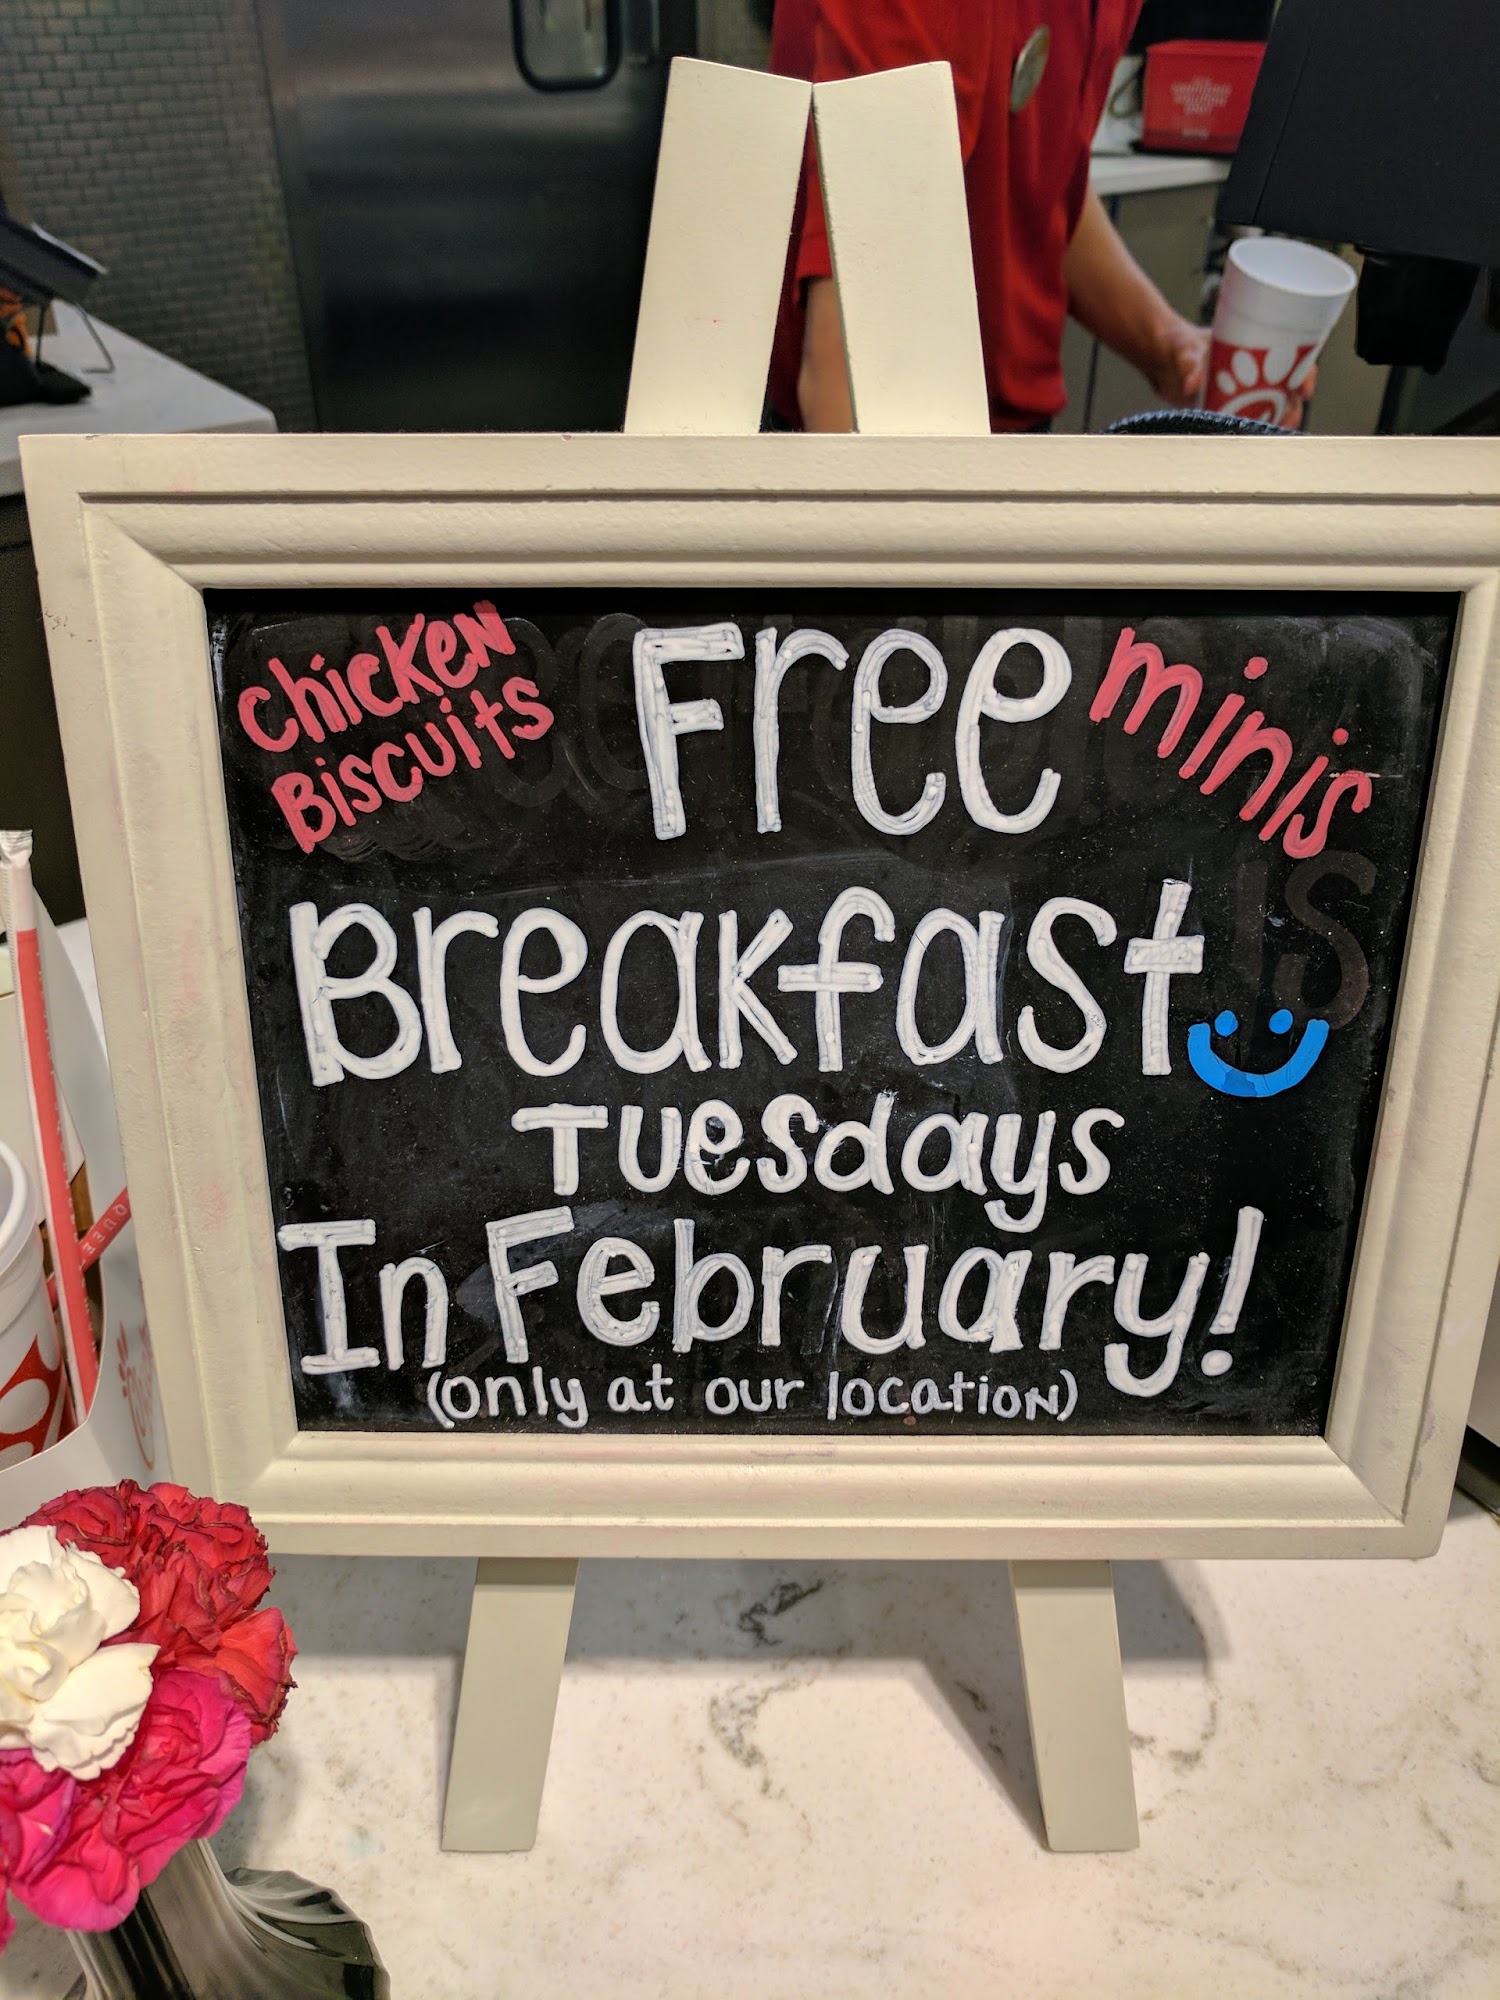 Chicken
Biscuits
Free
minis
Breakfast
Tuesdays
In February!
(only at our location)